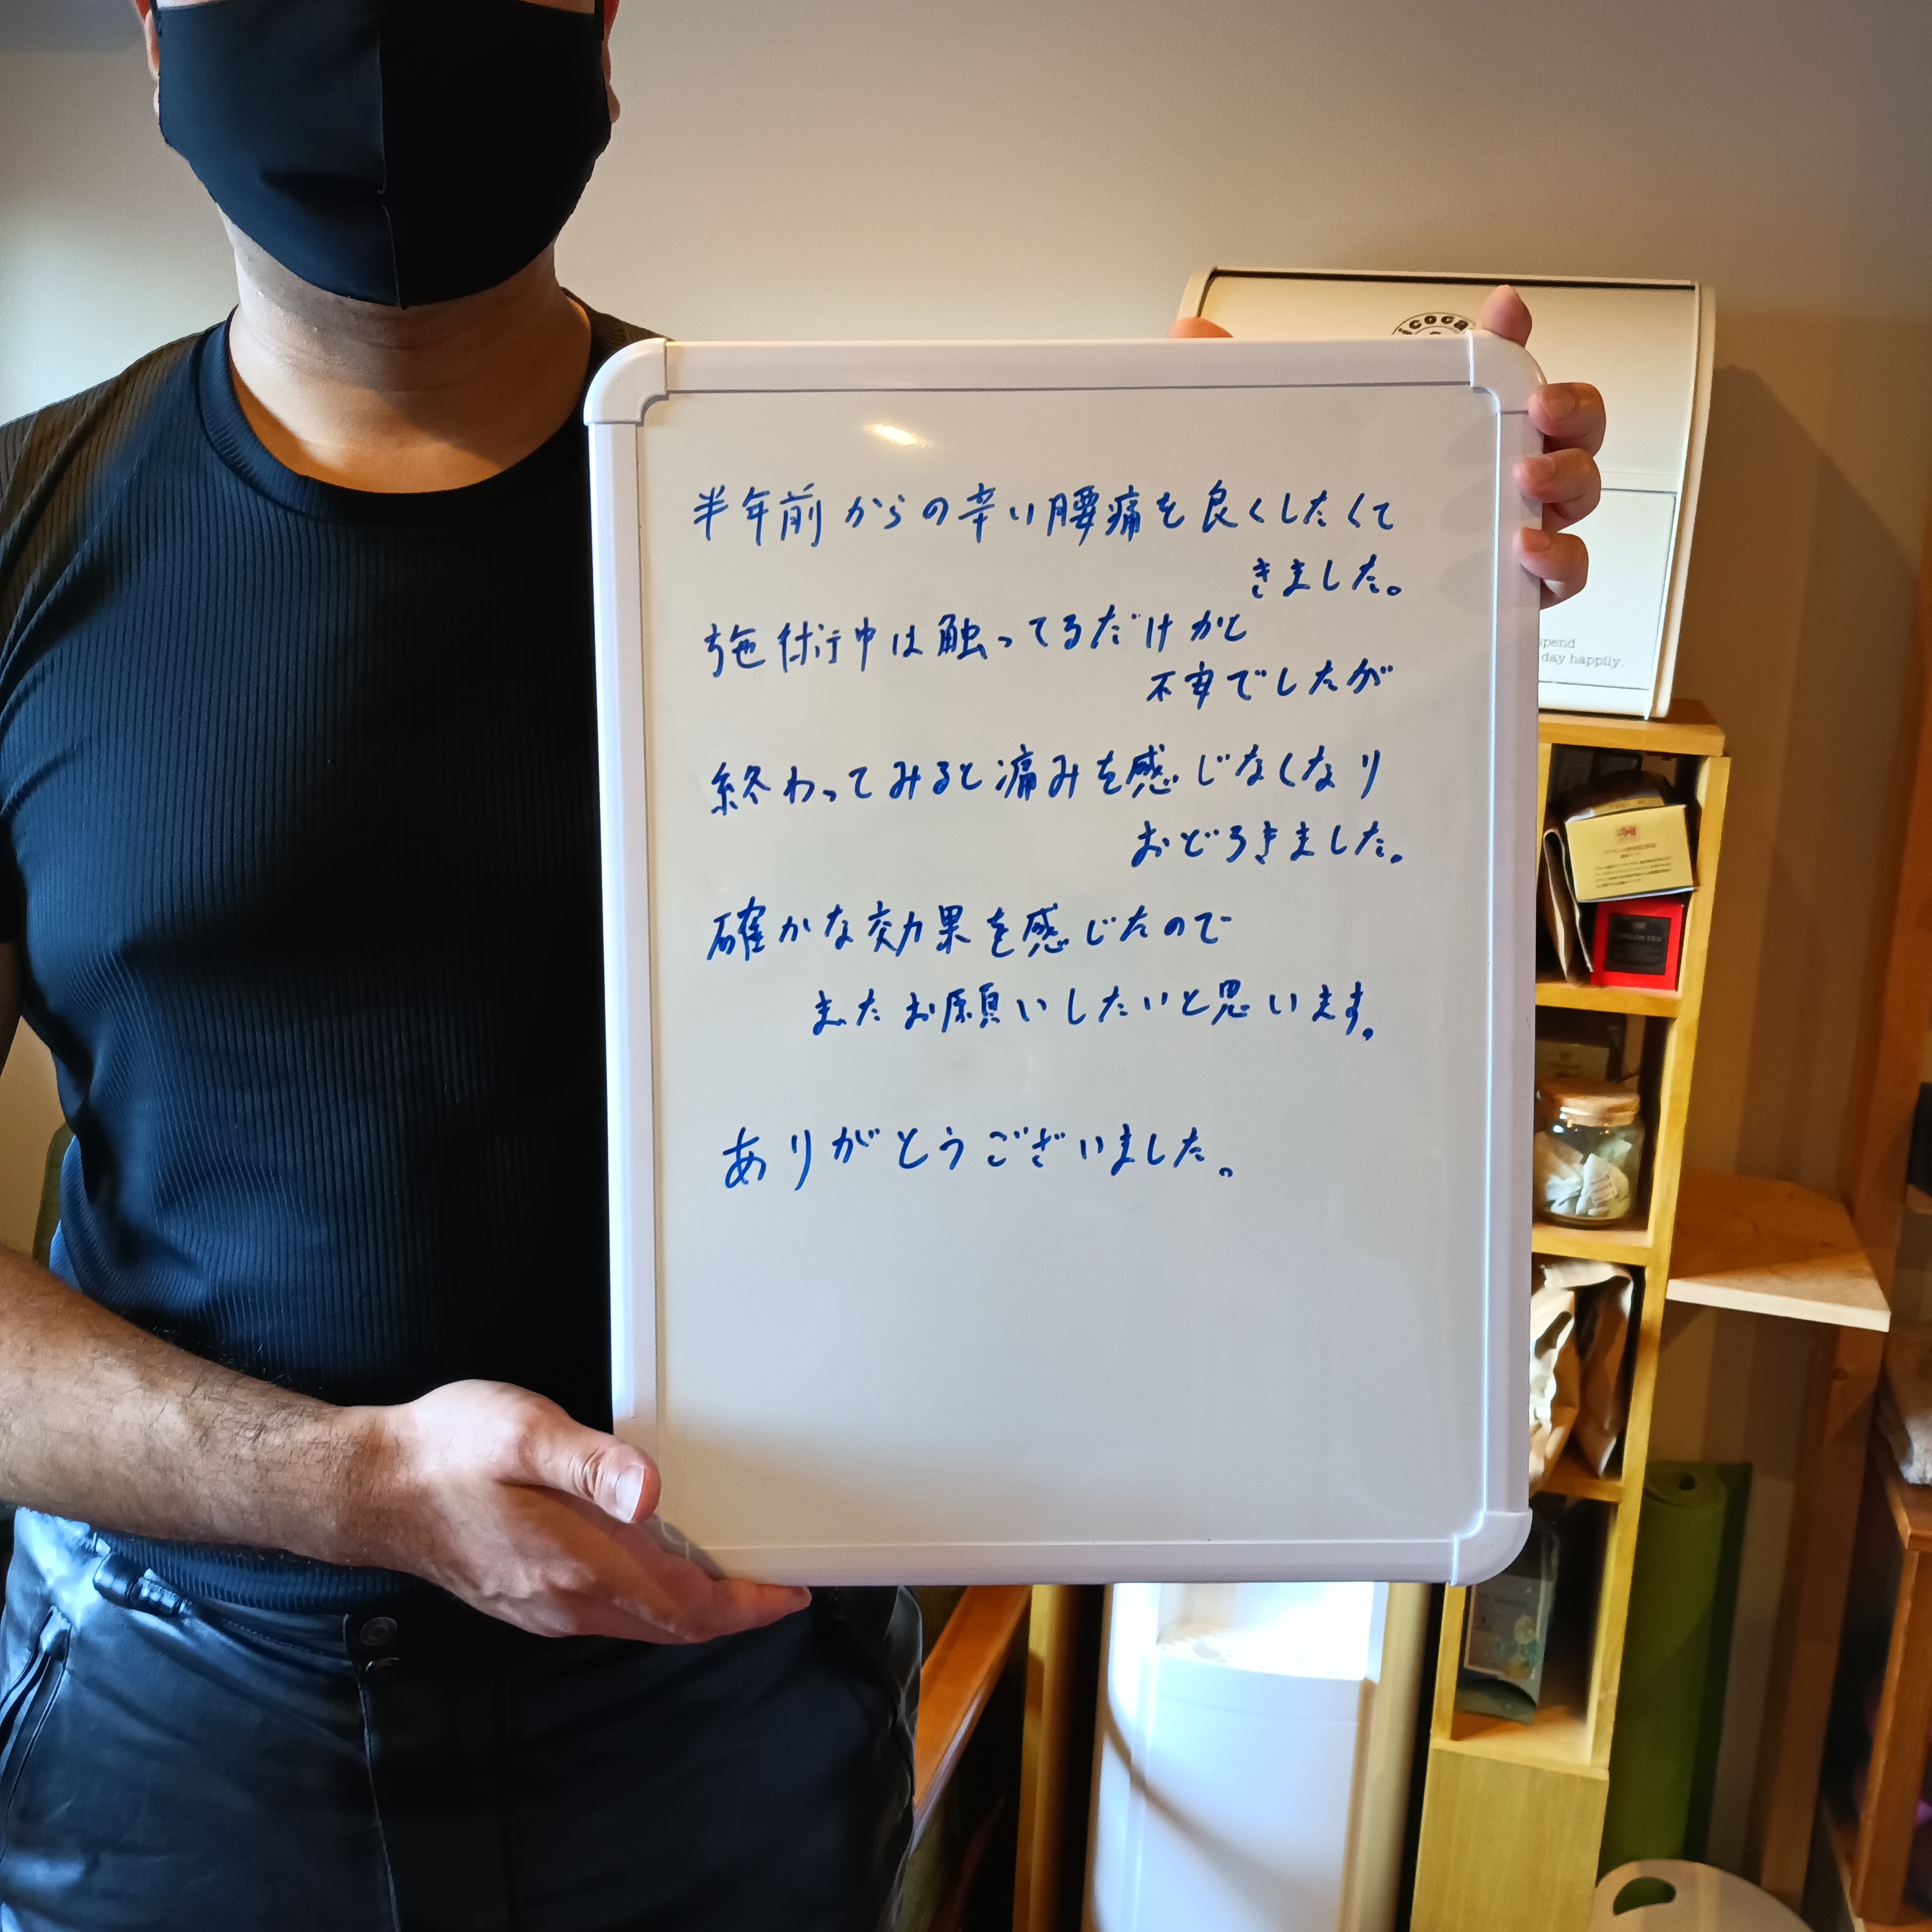 半年前からの辛い腰痛を良くしたくて
きました。
施術中は触ってるだけかと
不安でしたが
終わってみると痛みを感じなくなり
おどろきました。
確かな効果を感じたので
またお願いしたいと思います。
ありがとうございました。
coca
spend
day happily